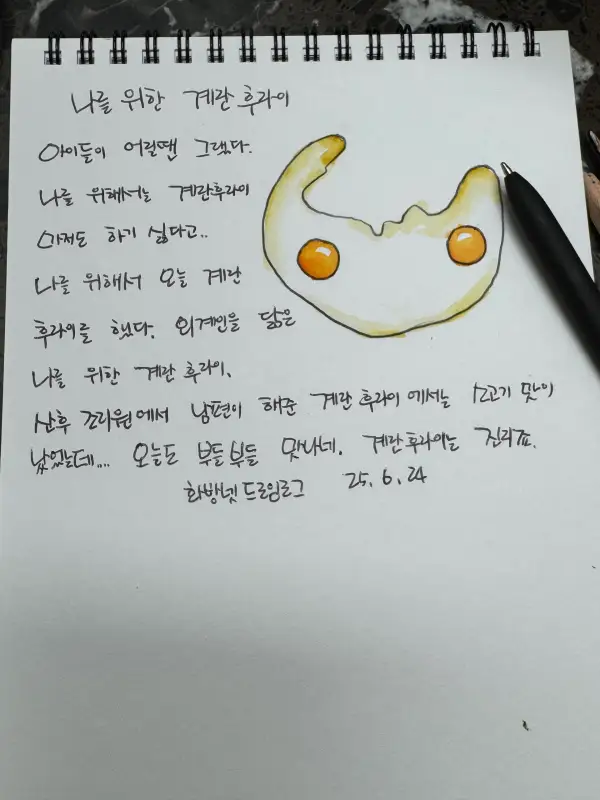 나를 위한 계란 후라이
아이들이 어릴땐 그랬다.
나를 위해서는 계란후라이
마저도 하기 싫다고..
나를 위해서 오늘 계란
후라이를 했다. 외계인을 닮은
나를 위한 계란 후라이.
산후 조리원에서 남편이 해준 계란 후라이에서는 소고기 맛이
났었는데.... 오늘도 부들부들 맛나네. 계란후라이는 진리죠.
화방넷드로잉로그 25. 6. 24